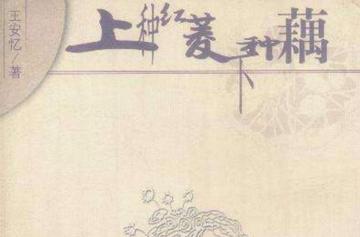 王安忆/著
上种红菱下种藕